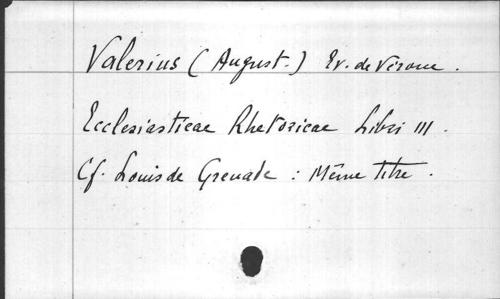 Valerius (August.) Ev. de Vérone.
Ecclesiasticae Rhetoricae Libri III.
Cf. Louis de Grenade : Même titre.